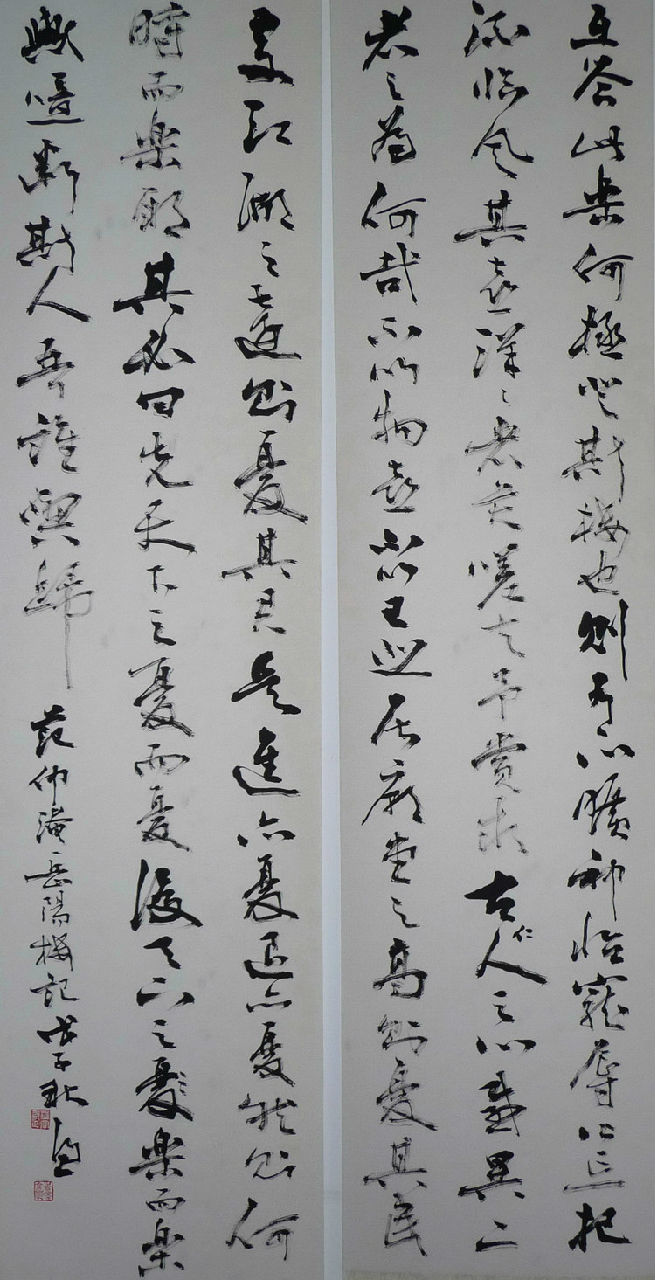 互答此樂何極登斯樓也則有心曠神怡寵辱偕忘把
酒臨風其喜洋洋者矣嗟夫予嘗求古仁人之心或異二
者之為何哉不以物喜不以己悲居廟堂之高則憂其民
處江湖之遠則憂其君是進亦憂退亦憂然則何
時而樂耶其必曰先天下之憂而憂後天下之憂樂而樂
歟噫微斯人吾誰與歸
范仲淹岳陽樓記戊子秋